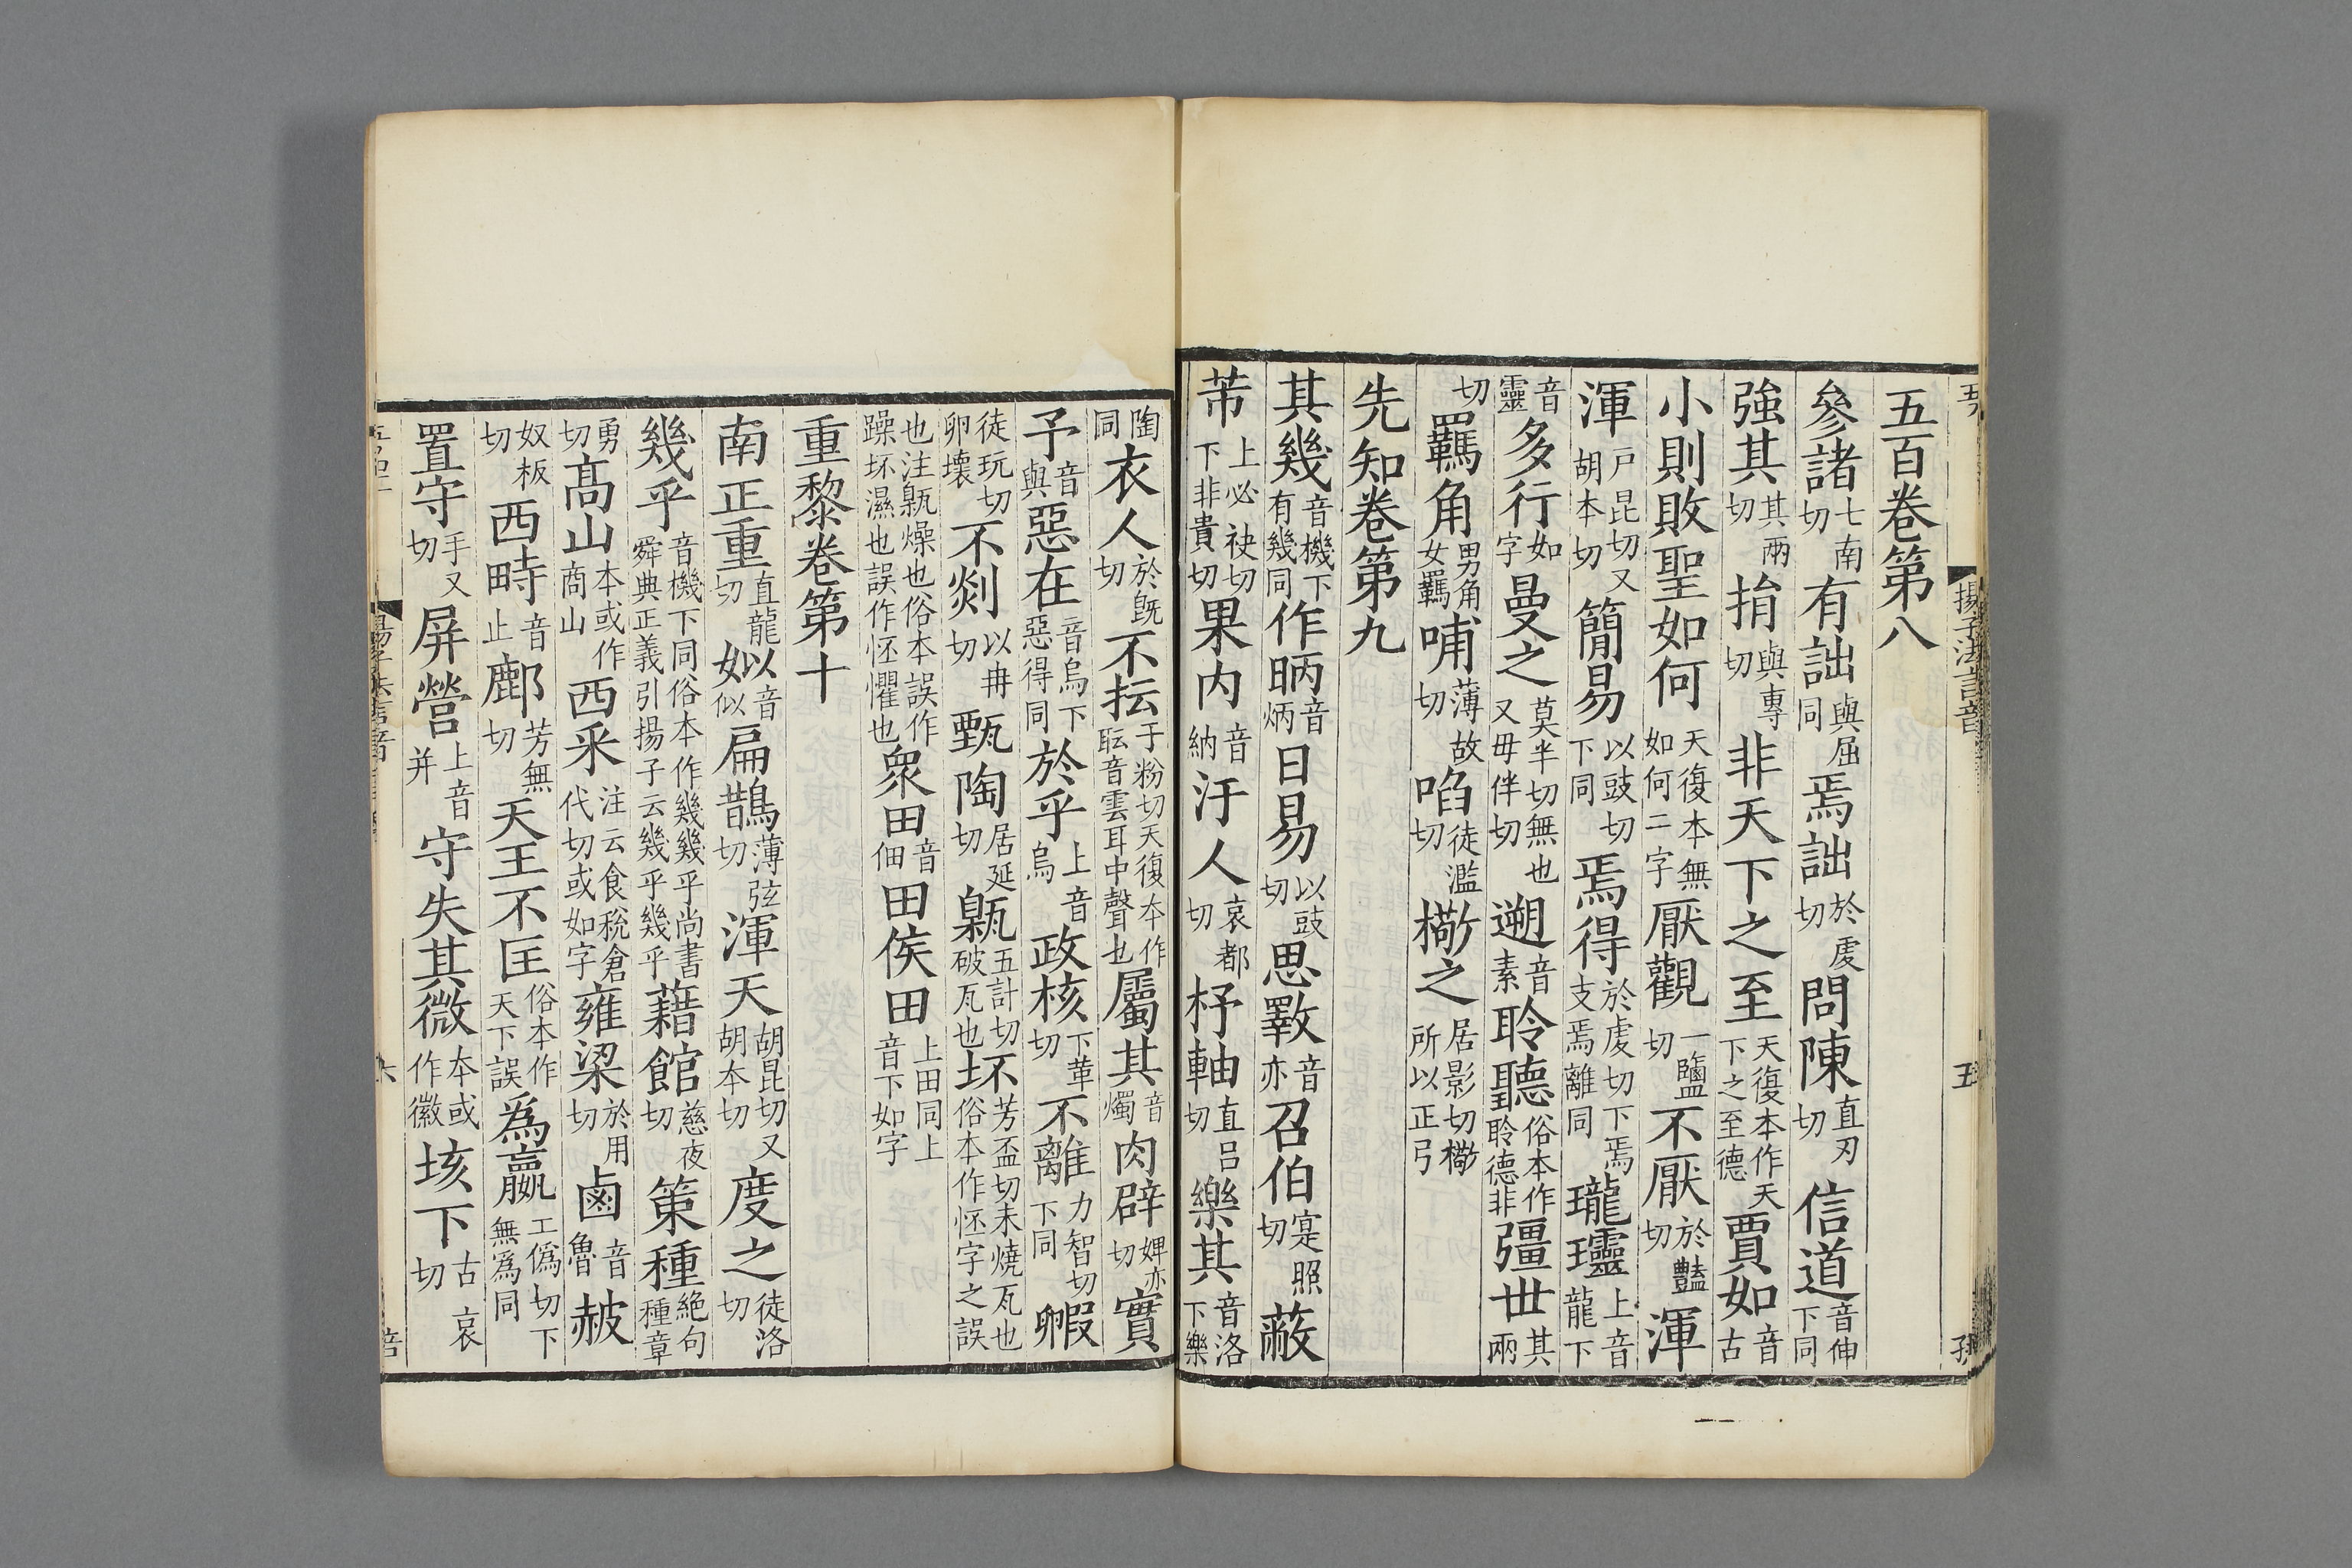 五百卷第八
參諸七南切有詘與屈同焉詘於虔切問陳直刃切信道音伸下同
強其其兩切掯與專切非天下之至天復本作天下之至德賈如音古
小則敗聖如何天復本無如何二字厭觀一鹽切不厭於豔切渾
渾戶昆切又胡本切簡易以豉切下同焉得於虔切下焉支焉離同瓏璗上音龍下
音靈多行如字曼之莫半切無也又毋伴切遡音素聆聽俗本作聆德非彊世其兩
切羈角男角女羈哺薄故切啗徒濫切檠之居影切檠所以正弓
先知卷第九
其幾音機下有幾同作昞音炳日易以豉切思斁音亦召伯寔照切蔽
芾上必袂切下非貴切果内音納汙人哀都切杼軸直呂切樂其音洛下樂
陶同衣人於既切不抎于粉切天復本作耺音雲耳中聲也屬其音燭肉辟婢亦切實
予音與惡在音烏下惡得同於乎上音烏政核下革切不離力智切下同㲉
徒玩切卵壞不剡以冉切甄陶居延切甈五計切破瓦也坏芳盃切未燒瓦也俗本作怌字之誤
也注甈燥也俗本誤作躁坏濕也誤作怌懼也衆田音佃田侯田上田同上音下如字
重黎卷第十
南正重直龍切姒音似扁鵲薄弦切渾天胡昆切又胡本切度之徒洛切
幾乎音機下同俗本作幾幾乎尚書舜典正義引揚子云幾乎幾乎藉館慈夜切策種絕句種章
勇切高山本或作商山西采注云食稅倉代切或如字雍梁於用切鹵音魯赧
奴板切西畤音止鄜芳無切天王不匡俗本作天下誤爲嬴工僞切下無爲同
置守手又切屏營上音并守失其微本或作徽垓下古哀切
揚子法言音
五
六